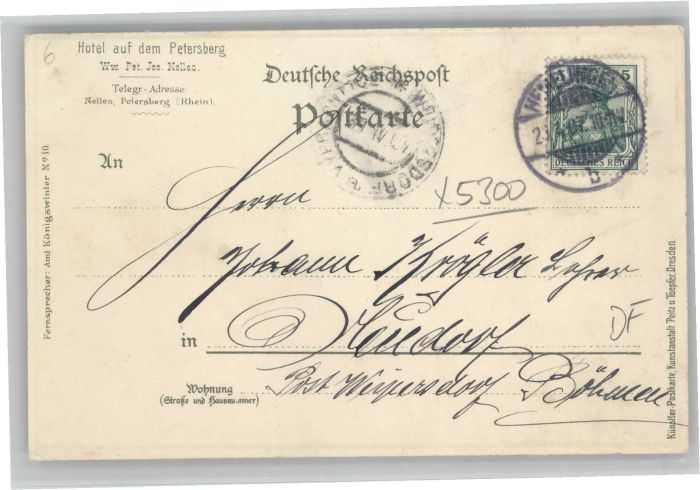 6
Hotel auf dem Petersberg
Ww. Pet. Jos. Nelles.
Telegr.-Adresse:
Nelles, Petersberg (Rhein).
Deutsche Reichspost
Postkarte
5
DEUTSCHES REICH
b
An
Herrn
x5300
Johann Kögler Lehrer
in Neudorf
DF
Wohnung
(Straße und Hausnummer)
Post Weipersdorf Böhmen
Fernsprecher: Amt Königswinter No 10.
Künstler-Postkarte, Kunstanstalt Peitz u Toepfer, Dresden.